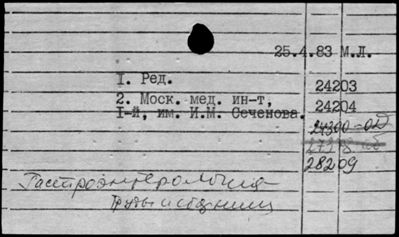 25.4.83 М.Л.
I. Ред. 24203
2. Моск. мед. ин-т, 24204
I-й, им. И.М. Сеченова. 24300-од
28209
Гастроэнтерология
Труды и сборники